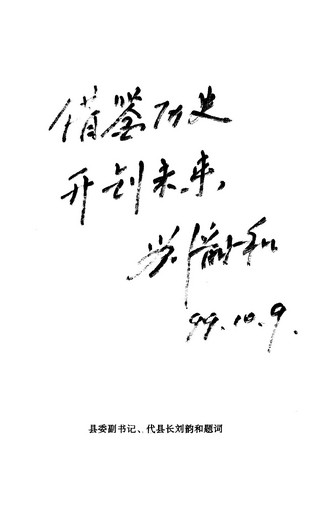 借鉴历史
开创未来，
刘韵和
99.10.9.
县委副书记、代县长刘韵和题词